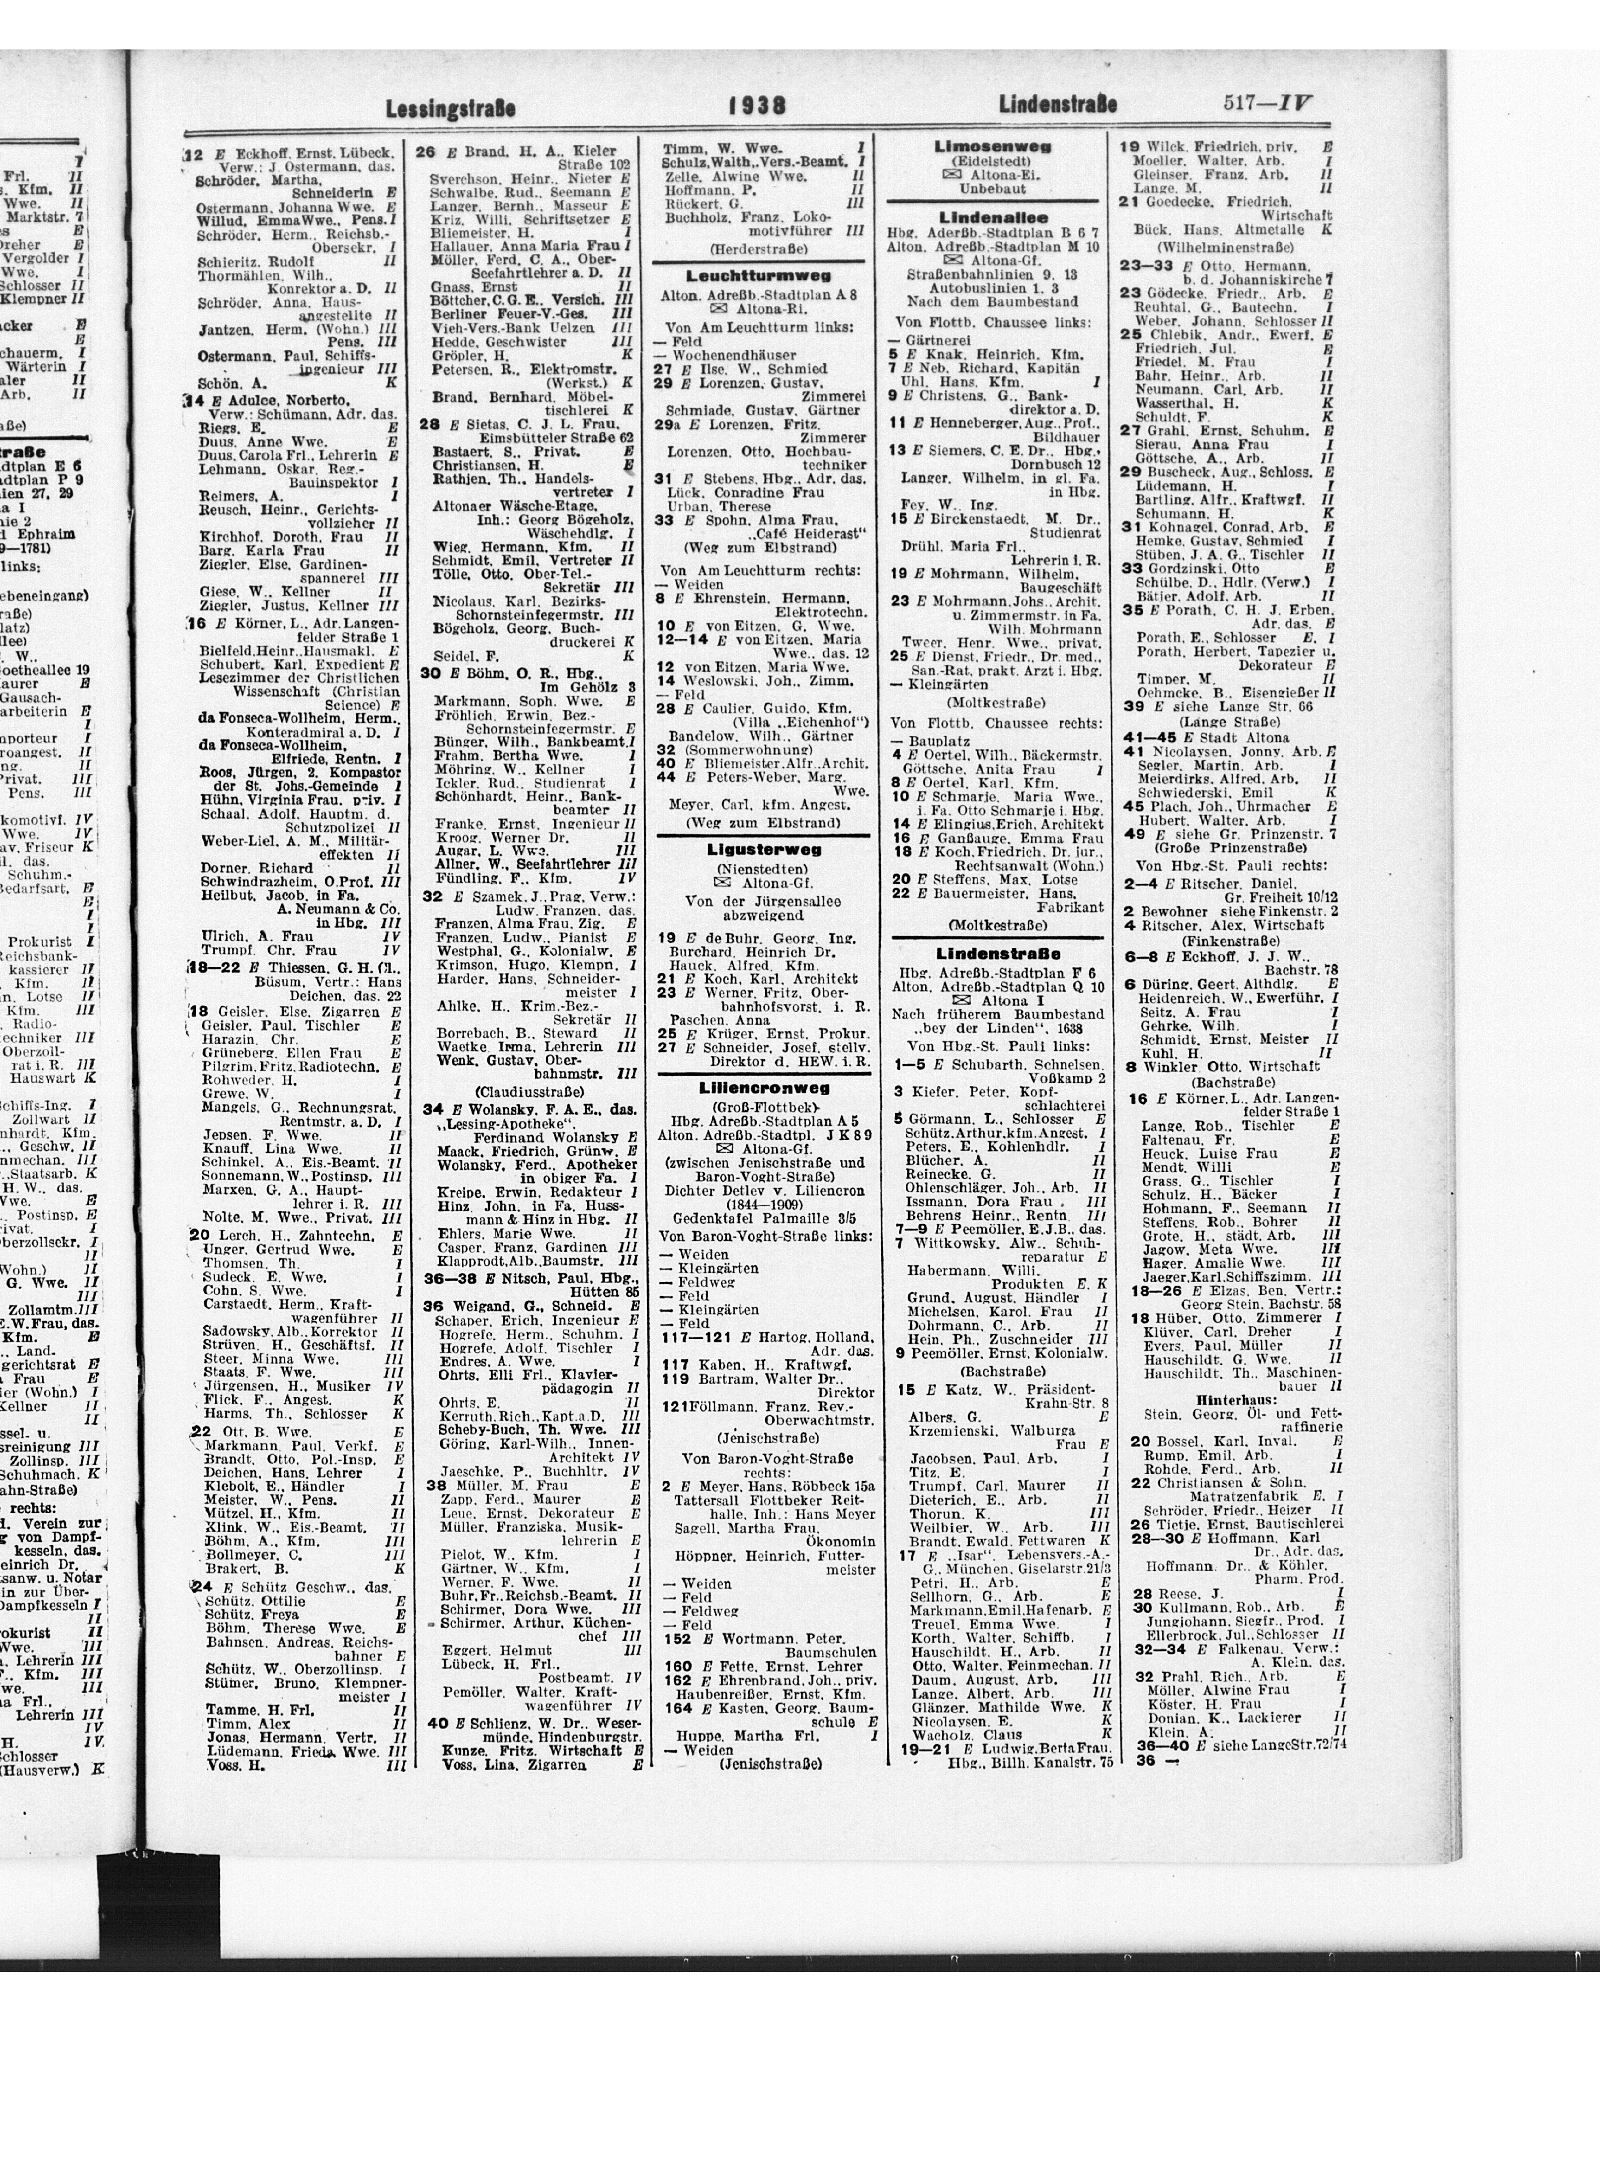 Lessingstraße 1938 Lindenstraße 517—IV
12 E Eckhoff, Ernst, Lübeck,
Verw.: J. Ostermann, das.
Schröder, Martha,
Schneiderin E
Ostermann, Johanna Wwe. E
Willud, Emma Wwe., Pens. I
Schröder, Herm., Reichsb.-
Obersekr. I
Schieritz, Rudolf II
Thormählen, Wilh.,
Konrektor a. D. II
Schröder, Anna, Haus-
angestellte II
Jantzen, Herm. (Wohn.) III
Pens. III
Ostermann, Paul, Schiffs-
ingenieur III
Schön, A. K
14 E Adulce, Norberto,
Verw.: Schümann, Adr. das.
Riegs, E. E
Duus, Anne Wwe. E
Duus, Carola Frl., Lehrerin E
Lehmann, Oskar, Reg.-
Bauinspektor I
Reimers, A. I
Reusch, Heinr., Gerichts-
vollzieher II
Kirchhof, Doroth. Frau II
Barg, Karla Frau II
Ziegler, Else, Gardinen-
spannerei III
Giese, W., Kellner II
Ziegler, Justus, Kellner III
16 E Körner, L., Adr. Langen-
felder Straße 1
Bielfeld, Heinr., Hausmakl. E
Schubert, Karl, Expedient E
Lesezimmer der Christlichen
Wissenschaft (Christian
Science) E
da Fonseca-Wollheim, Herm.,
Konteradmiral a. D. I
da Fonseca-Wollheim,
Elfriede, Rentn. I
Roos, Jürgen, 2. Kompastor
der St. Johs.-Gemeinde I
Hühn, Virginia Frau, priv. I
Schaal, Adolf, Hauptm. d.
Schutzpolizei II
Weber-Liel, A. M., Militär-
effekten II
Dorner, Richard II
Schwindrazheim, O. Prof. III
Heilbut, Jacob, in Fa.
A. Neumann & Co.
in Hbg. III
Ulrich, A. Frau IV
Trumpf, Chr. Frau IV
18—22 E Thiessen, G. H. Ch.,
Büsum, Vertr.: Hans
Deichen, das. 22
18 Geisler, Else, Zigarren E
Geisler, Paul, Tischler E
Harazin, Chr. E
Grüneberg, Ellen Frau E
Pilgrim, Fritz, Radiotechn. E
Rohweder, H. I
Grewe, W. I
Mangels, G., Rechnungsrat,
Rentmstr. a. D. I
Jepsen, F. Wwe. II
Knauff, Lina Wwe. II
Schinkel, A., Eis.-Beamt. II
Sonnemann, W., Postinsp. III
Marxen, G. A., Haupt-
lehrer i. R. III
Nolte, M. Wwe., Privat. III
20 Lerch, H., Zahntechn. E
Unger, Gertrud Wwe. E
Thomsen, Th. I
Sudeck, E. Wwe. I
Cohn, S. Wwe. I
Carstaedt, Herm., Kraft-
wagenführer II
Sadowsky, Alb., Korrektor II
Strüven, H., Geschäftsf. II
Steer, Minna Wwe. III
Staats, F. Wwe. III
Jürgensen, H., Musiker IV
Flick, F., Angest. K
Harms, Th., Schlosser K
22 Ott, B. Wwe. E
Markmann, Paul, Verkf. E
Brandt, Otto, Pol.-Insp. E
Deichen, Hans, Lehrer I
Klebolt, E., Händler I
Meister, W., Pens. II
Mützel, H., Kfm. II
Klink, W., Eis.-Beamt. II
Böhm, A., Kfm. III
Bollmeyer, C. III
Brakert, B. K
24 E Schütz Geschw., das.
Schütz, Ottilie E
Schütz, Freya E
Böhm, Therese Wwe. E
Bahnsen, Andreas, Reichs-
bahner E
Schütz, W., Oberzollinsp. I
Stümer, Bruno, Klempner-
meister I
Tamme, H. Frl. II
Timm, Alex II
Jonas, Hermann, Vertr. II
Lüdemann, Frieda Wwe. III
Voss, H. III
26 E Brand, H. A., Kieler
Straße 102
Sverchson, Heinr., Nieter E
Schwalbe, Rud., Seemann E
Langer, Bernh., Masseur E
Kriz, Willi, Schriftsetzer E
Bliemeister, H. I
Hallauer, Anna Maria Frau I
Möller, Ferd. C. A., Ober-
Seefahrtlehrer a. D. II
Gnass, Ernst II
Böttcher, C. G. E., Versich. III
Berliner Feuer-V.-Ges. III
Vieh-Vers.-Bank Uelzen III
Hedde, Geschwister III
Gröpler, H. K
Petersen, R., Elektromstr.
(Werkst.) K
Brand, Bernhard, Möbel-
tischlerei K
28 E Sietas, C. J. L. Frau,
Eimsbütteler Straße 62
Bastaert, S., Privat. E
Christiansen, H. E
Rathjen, Th., Handels-
vertreter I
Altonaer Wäsche-Etage,
Inh.: Georg Bögeholz,
Wäschehdlg. I
Wieg, Hermann, Kfm. II
Schmidt, Emil, Vertreter II
Tölle, Otto, Ober-Tel.-
Sekretär III
Nicolaus, Karl, Bezirks-
Schornsteinfegermstr. III
Bögeholz, Georg, Buch-
druckerei K
Seidel, F. K
30 E Böhm, O. R., Hbg.,
Im Gehölz 3
Markmann, Soph. Wwe. E
Fröhlich, Erwin, Bez.-
Schornsteinfegermstr. E
Bünger, Wilh., Bankbeamt. I
Frahm, Bertha Wwe. I
Möhring, W., Kellner I
Ickler, Rud., Studienrat I
Schönhardt, Heinr., Bank-
beamter II
Franke, Ernst, Ingenieur II
Kroog, Werner Dr. II
Augar, L. Wwe. III
Allner, W., Seefahrtlehrer III
Fündling, F., Kfm. IV
32 E Szamek, J., Prag, Verw.:
Ludw. Franzen, das.
Franzen, Alma Frau, Zig. E
Franzen, Ludw., Pianist E
Westphal, G., Kolonialw. E
Krimson, Hugo, Klempn. I
Harder, Hans, Schneider-
meister I
Ahlke, H., Krim.-Bez.-
Sekretär II
Borrebach, B., Steward II
Waetke, Irma, Lehrerin III
Wenk, Gustav, Ober-
bahnmstr. III
(Claudiusstraße)
34 E Wolansky, F. A. E., das.
„Lessing-Apotheke",
Ferdinand Wolansky E
Maack, Friedrich, Grünw. E
Wolansky, Ferd., Apotheker
in obiger Fa. I
Kreipe, Erwin, Redakteur I
Hinz, John, in Fa. Huss-
mann & Hinz in Hbg. II
Ehlers, Marie Wwe. II
Casper, Franz, Gardinen III
Klapprodt, Alb., Baumstr. III
36—38 E Nitsch, Paul, Hbg.,
Hütten 85
36 Weigand, G., Schneid. E
Schaper, Erich, Ingenieur E
Hogrefe, Herm., Schuhm. I
Hogrefe, Adolf, Tischler I
Endres, A. Wwe. I
Ohrts, Elli Frl., Klavier-
pädagogin II
Ohrts, E. II
Kerruth, Rich., Kapt. a. D. III
Scheby-Buch, Th. Wwe. III
Göring, Karl-Wilh., Innen-
Architekt IV
Jaeschke, P., Buchhltr. IV
38 Müller, M. Frau E
Zapp, Ferd., Maurer E
Leue, Ernst, Dekorateur E
Müller, Franziska, Musik-
lehrerin E
Pielot, W., Kfm. I
Gärtner, W., Kfm. I
Werner, F. Wwe. II
Buhr, Fr., Reichsb.-Beamt. II
Schirmer, Dora Wwe. III
Schirmer, Arthur, Küchen-
chef III
Eggert, Helmut III
Lübeck, H. Frl.,
Postbeamt. IV
Pemöller, Walter, Kraft-
wagenführer IV
40 E Schlienz, W. Dr., Weser-
münde, Hindenburgstr.
Kunze, Fritz, Wirtschaft E
Voss, Lina, Zigarren E
Timm, W. Wwe. I
Schulz, Walth., Vers.-Beamt. I
Zelle, Alwine Wwe. II
Hoffmann, P. II
Rückert, G. III
Buchholz, Franz, Loko-
motivführer III
(Herderstraße)
Leuchtturmweg
Alton. Adreßb.-Stadtplan A 8
Altona-Ri.
Von Am Leuchtturm links:
— Feld
— Wochenendhäuser
27 E Ilse, W., Schmied
29 E Lorenzen, Gustav,
Zimmerei
Schmiade, Gustav, Gärtner
29a E Lorenzen, Fritz,
Zimmerer
Lorenzen, Otto, Hochbau-
techniker
31 E Stebens, Hbg., Adr. das.
Lück, Conradine Frau
Urban, Therese
33 E Spohn, Alma Frau,
„Café Heiderast"
(Weg zum Elbstrand)
Von Am Leuchtturm rechts:
— Weiden
8 E Ehrenstein, Hermann,
Elektrotechn.
10 E von Eitzen, G. Wwe.
12—14 E von Eitzen, Maria
Wwe., das. 12
12 von Eitzen, Maria Wwe.
14 Weslowski, Joh., Zimm.
— Feld
28 E Caulier, Guido, Kfm.
(Villa „Eichenhof")
Bandelow, Wilh., Gärtner
32 (Sommerwohnung)
40 E Bliemeister, Alfr., Archit.
44 E Peters-Weber, Marg.
Wwe.
Meyer, Carl, kfm. Angest.
(Weg zum Elbstrand)
Ligusterweg
(Nienstedten)
Altona-Gf.
Von der Jürgensallee
abzweigend
19 E de Buhr, Georg, Ing.
Burchard, Heinrich Dr.
Hauck, Alfred, Kfm.
21 E Koch, Karl, Architekt
23 E Werner, Fritz, Ober-
bahnhofsvorst. i. R.
Paschen, Anna
25 E Krüger, Ernst, Prokur.
27 E Schneider, Josef, stellv.
Direktor d. HEW. i. R.
Liliencronweg
(Groß-Flottbek)
Hbg. Adreßb.-Stadtplan A 5
Alton. Adreßb.-Stadtpl. J K 8 9
Altona-Gf.
(zwischen Jenischstraße und
Baron-Voght-Straße)
Dichter Detlev v. Liliencron
(1844—1909)
Gedenktafel Palmaille 3/5
Von Baron-Voght-Straße links:
— Weiden
— Kleingärten
— Feldweg
— Feld
— Kleingärten
— Feld
117—121 E Hartog, Holland,
Adr. das.
117 Kaben, H., Kraftwgf.
119 Bartram, Walter Dr.,
Direktor
121 Föllmann, Franz, Rev.-
Oberwachtmstr.
(Jenischstraße)
Von Baron-Voght-Straße
rechts:
2 E Meyer, Hans, Röbbeck 15a
Tattersall Flottbeker Reit-
halle, Inh.: Hans Meyer
Sagell, Martha Frau,
Ökonomin
Höppner, Heinrich, Futter-
meister
— Weiden
— Feld
— Feldweg
— Feld
152 E Wortmann, Peter,
Baumschulen
160 E Fette, Ernst, Lehrer
162 E Ehrenbrand, Joh., priv.
Haubenreißer, Ernst, Kfm.
164 E Kasten, Georg, Baum-
schule E
Huppe, Martha Frl. I
— Weiden
(Jenischstraße)
Limosenweg
(Eidelstedt)
Altona-Ei.
Unbebaut
Lindenallee
Hbg. Aderßb.-Stadtplan B 6 7
Alton. Adreßb.-Stadtplan M 10
Altona-Gf.
Straßenbahnlinien 9, 13
Autobuslinien 1, 3
Nach dem Baumbestand
Von Flottb. Chaussee links:
— Gärtnerei
5 E Knak, Heinrich, Kfm.
7 E Neb, Richard, Kapitän
Uhl, Hans, Kfm. I
9 E Christens, G., Bank-
direktor a. D.
11 E Henneberger, Aug., Prof.,
Bildhauer
13 E Siemers, C. E. Dr., Hbg.,
Dornbusch 12
Langer, Wilhelm, in gl. Fa.
in Hbg.
Fey, W., Ing.
15 E Birckenstaedt, M. Dr.,
Studienrat
Drühl, Maria Frl.,
Lehrerin i. R.
19 E Mohrmann, Wilhelm,
Baugeschäft
23 E Mohrmann, Johs., Archit.
u. Zimmermstr. in Fa.
Wilh. Mohrmann
Tweer, Henr. Wwe., privat.
25 E Dienst, Friedr., Dr. med.,
San.-Rat, prakt. Arzt i. Hbg.
— Kleingärten
(Moltkestraße)
Von Flottb. Chaussee rechts:
— Bauplatz
4 E Oertel, Wilh., Bäckermstr.
Göttsche, Anita Frau I
8 E Oertel, Karl, Kfm.
10 E Schmarje, Maria Wwe.,
i. Fa. Otto Schmarje i. Hbg.
14 E Elingius, Erich, Architekt
16 E Ganßauge, Emma Frau
18 E Koch, Friedrich, Dr. jur.,
Rechtsanwalt (Wohn.)
20 E Steffens, Max, Lotse
22 E Bauermeister, Hans,
Fabrikant
(Moltkestraße)
Lindenstraße
Hbg. Adreßb.-Stadtplan F 6
Alton. Adreßb.-Stadtplan Q 10
Altona I
Nach früherem Baumbestand
„bey der Linden", 1638
Von Hbg.-St. Pauli links:
1—5 E Schubarth, Schnelsen,
Voßkamp 2
3 Kiefer, Peter, Kopf-
schlachterei
5 Görmann, L., Schlosser E
Schütz, Arthur, kfm. Angest. I
Peters, E., Kohlenhdlr. I
Blücher, A. II
Reinecke, G. II
Ohlenschläger, Joh., Arb. II
Issmann, Dora Frau III
Behrens Heinr., Rentn. III
7—9 E Peemöller, E. J. B., das.
7 Wittkowsky, Alw., Schuh-
reparatur E
Habermann, Willi,
Produkten E. K
Grund, August, Händler I
Michelsen, Karol. Frau II
Dohrmann, C., Arb. II
Hein, Ph., Zuschneider III
9 Peemöller, Ernst, Kolonialw.
(Bachstraße)
15 E Katz, W., Präsident-
Krahn-Str. 8
Albers, G. E
Krzemienski, Walburga
Frau E
Jacobsen, Paul, Arb. I
Titz, E. I
Trumpf, Carl, Maurer II
Dieterich, E., Arb. II
Thorun, K. III
Weilbier, W., Arb. III
Brandt, Ewald, Fettwaren K
17 E „Isar", Lebensvers.-A.-
G., München, Giselarstr. 21/3
Petri, H., Arb. E
Sellhorn, G., Arb. E
Markmann, Emil, Hafenarb. E
Treuel, Emma Wwe. I
Korth, Walter, Schiffb. I
Hauschildt, H., Arb. II
Otto, Walter, Feinmechan. II
Daum, August, Arb. III
Lange, Albert, Arb. III
Glänzer, Mathilde Wwe. K
Nicolaysen, E. K
Wacholz, Claus K
19—21 E Ludwig, Berta Frau,
Hbg., Billh. Kanalstr. 75
19 Wilck, Friedrich, priv. E
Moeller, Walter, Arb. I
Gleinser, Franz, Arb. II
Lange, M. II
21 Goedecke, Friedrich,
Wirtschaft
Bück, Hans, Altmetalle K
(Wilhelminenstraße)
23—33 E Otto, Hermann,
b. d. Johanniskirche 7
23 Gödecke, Friedr., Arb. E
Reuhtal, G., Bautechn. I
Weber, Johann, Schlosser II
25 Chlebik, Andr., Ewerf. E
Friedrich, Jul. E
Friedel, M. Frau I
Bahr, Heinr., Arb. II
Neumann, Carl, Arb. II
Wasserthal, H. K
Schuldt, F. K
27 Grahl, Ernst, Schuhm. E
Sierau, Anna Frau I
Göttsche, A., Arb. II
29 Buscheck, Aug., Schloss. E
Lüdemann, H. I
Bartling, Alfr., Kraftwgf. II
Schumann, H. K
31 Kohnagel, Conrad, Arb. E
Hemke, Gustav, Schmied I
Stüben, J. A. G., Tischler II
33 Gordzinski, Otto E
Schülbe, D., Hdlr. (Verw.) I
Bätjer, Adolf, Arb. II
35 E Porath, C. H. J. Erben,
Adr. das. E
Porath, E., Schlosser E. I
Porath, Herbert, Tapezier u.
Dekorateur E
Timper, M. II
Oehmcke, B., Eisengießer II
39 E siehe Lange Str. 66
(Lange Straße)
41—45 E Stadt Altona
41 Nicolaysen, Jonny, Arb. E
Segler, Martin, Arb. I
Meierdirks, Alfred, Arb. II
Schwiederski, Emil K
45 Plach, Joh., Uhrmacher E
Hubert, Walter, Arb. I
49 E siehe Gr. Prinzenstr. 7
(Große Prinzenstraße)
Von Hbg.-St. Pauli rechts:
2—4 E Ritscher, Daniel,
Gr. Freiheit 10/12
2 Bewohner siehe Finkenstr. 2
4 Ritscher, Alex, Wirtschaft
(Finkenstraße)
6—8 E Eckhoff, J. J. W.,
Bachstr. 78
6 Düring, Geert, Althdlg. E
Heidenreich, W., Ewerführ. I
Seitz, A. Frau I
Gehrke, Wilh. I
Schmidt, Ernst, Meister II
Kuhl, H. II
8 Winkler, Otto, Wirtschaft
(Bachstraße)
16 E Körner, L., Adr. Langen-
felder Straße 1
Lange, Rob., Tischler E
Faltenau, Fr. E
Heuck, Luise Frau E
Mendt, Willi E
Grass, G., Tischler I
Schulz, H., Bäcker I
Hohmann, F., Seemann II
Steffens, Rob., Bohrer II
Grote, H., städt. Arb. III
Jagow, Meta Wwe. III
Hager, Amalie Wwe. III
Jaeger, Karl, Schiffszimm. III
18—26 E Elzas, Ben, Vertr.:
Georg Stein, Bachstr. 58
18 Hüber, Otto, Zimmerer I
Klüver, Carl, Dreher I
Evers, Paul, Müller II
Hauschildt, G. Wwe. II
Hauschildt, Th., Maschinen-
bauer II
Hinterhaus:
Stein, Georg, Öl- und Fett-
raffinerie
20 Bossel, Karl, Inval. E
Rump, Emil, Arb. I
Rohde, Ferd., Arb. II
22 Christiansen & Sohn,
Matratzenfabrik E. I
Schröder, Friedr., Heizer II
26 Tietje, Ernst, Bautischlerei
28—30 E Hoffmann, Karl
Dr., Adr. das.
Hoffmann, Dr., & Köhler,
Pharm. Prod.
28 Reese, J. I
30 Kullmann, Rob., Arb. E
Jungjohann, Siegfr., Prod. I
Ellerbrock, Jul., Schlosser II
32—34 E Falkenau, Verw.:
A. Klein, das.
32 Prahl, Rich., Arb. E
Möller, Alwine Frau I
Köster, H. Frau I
Donian, K., Lackierer II
Klein, A. II
36—40 E siehe Lange Str. 72/74
36 —